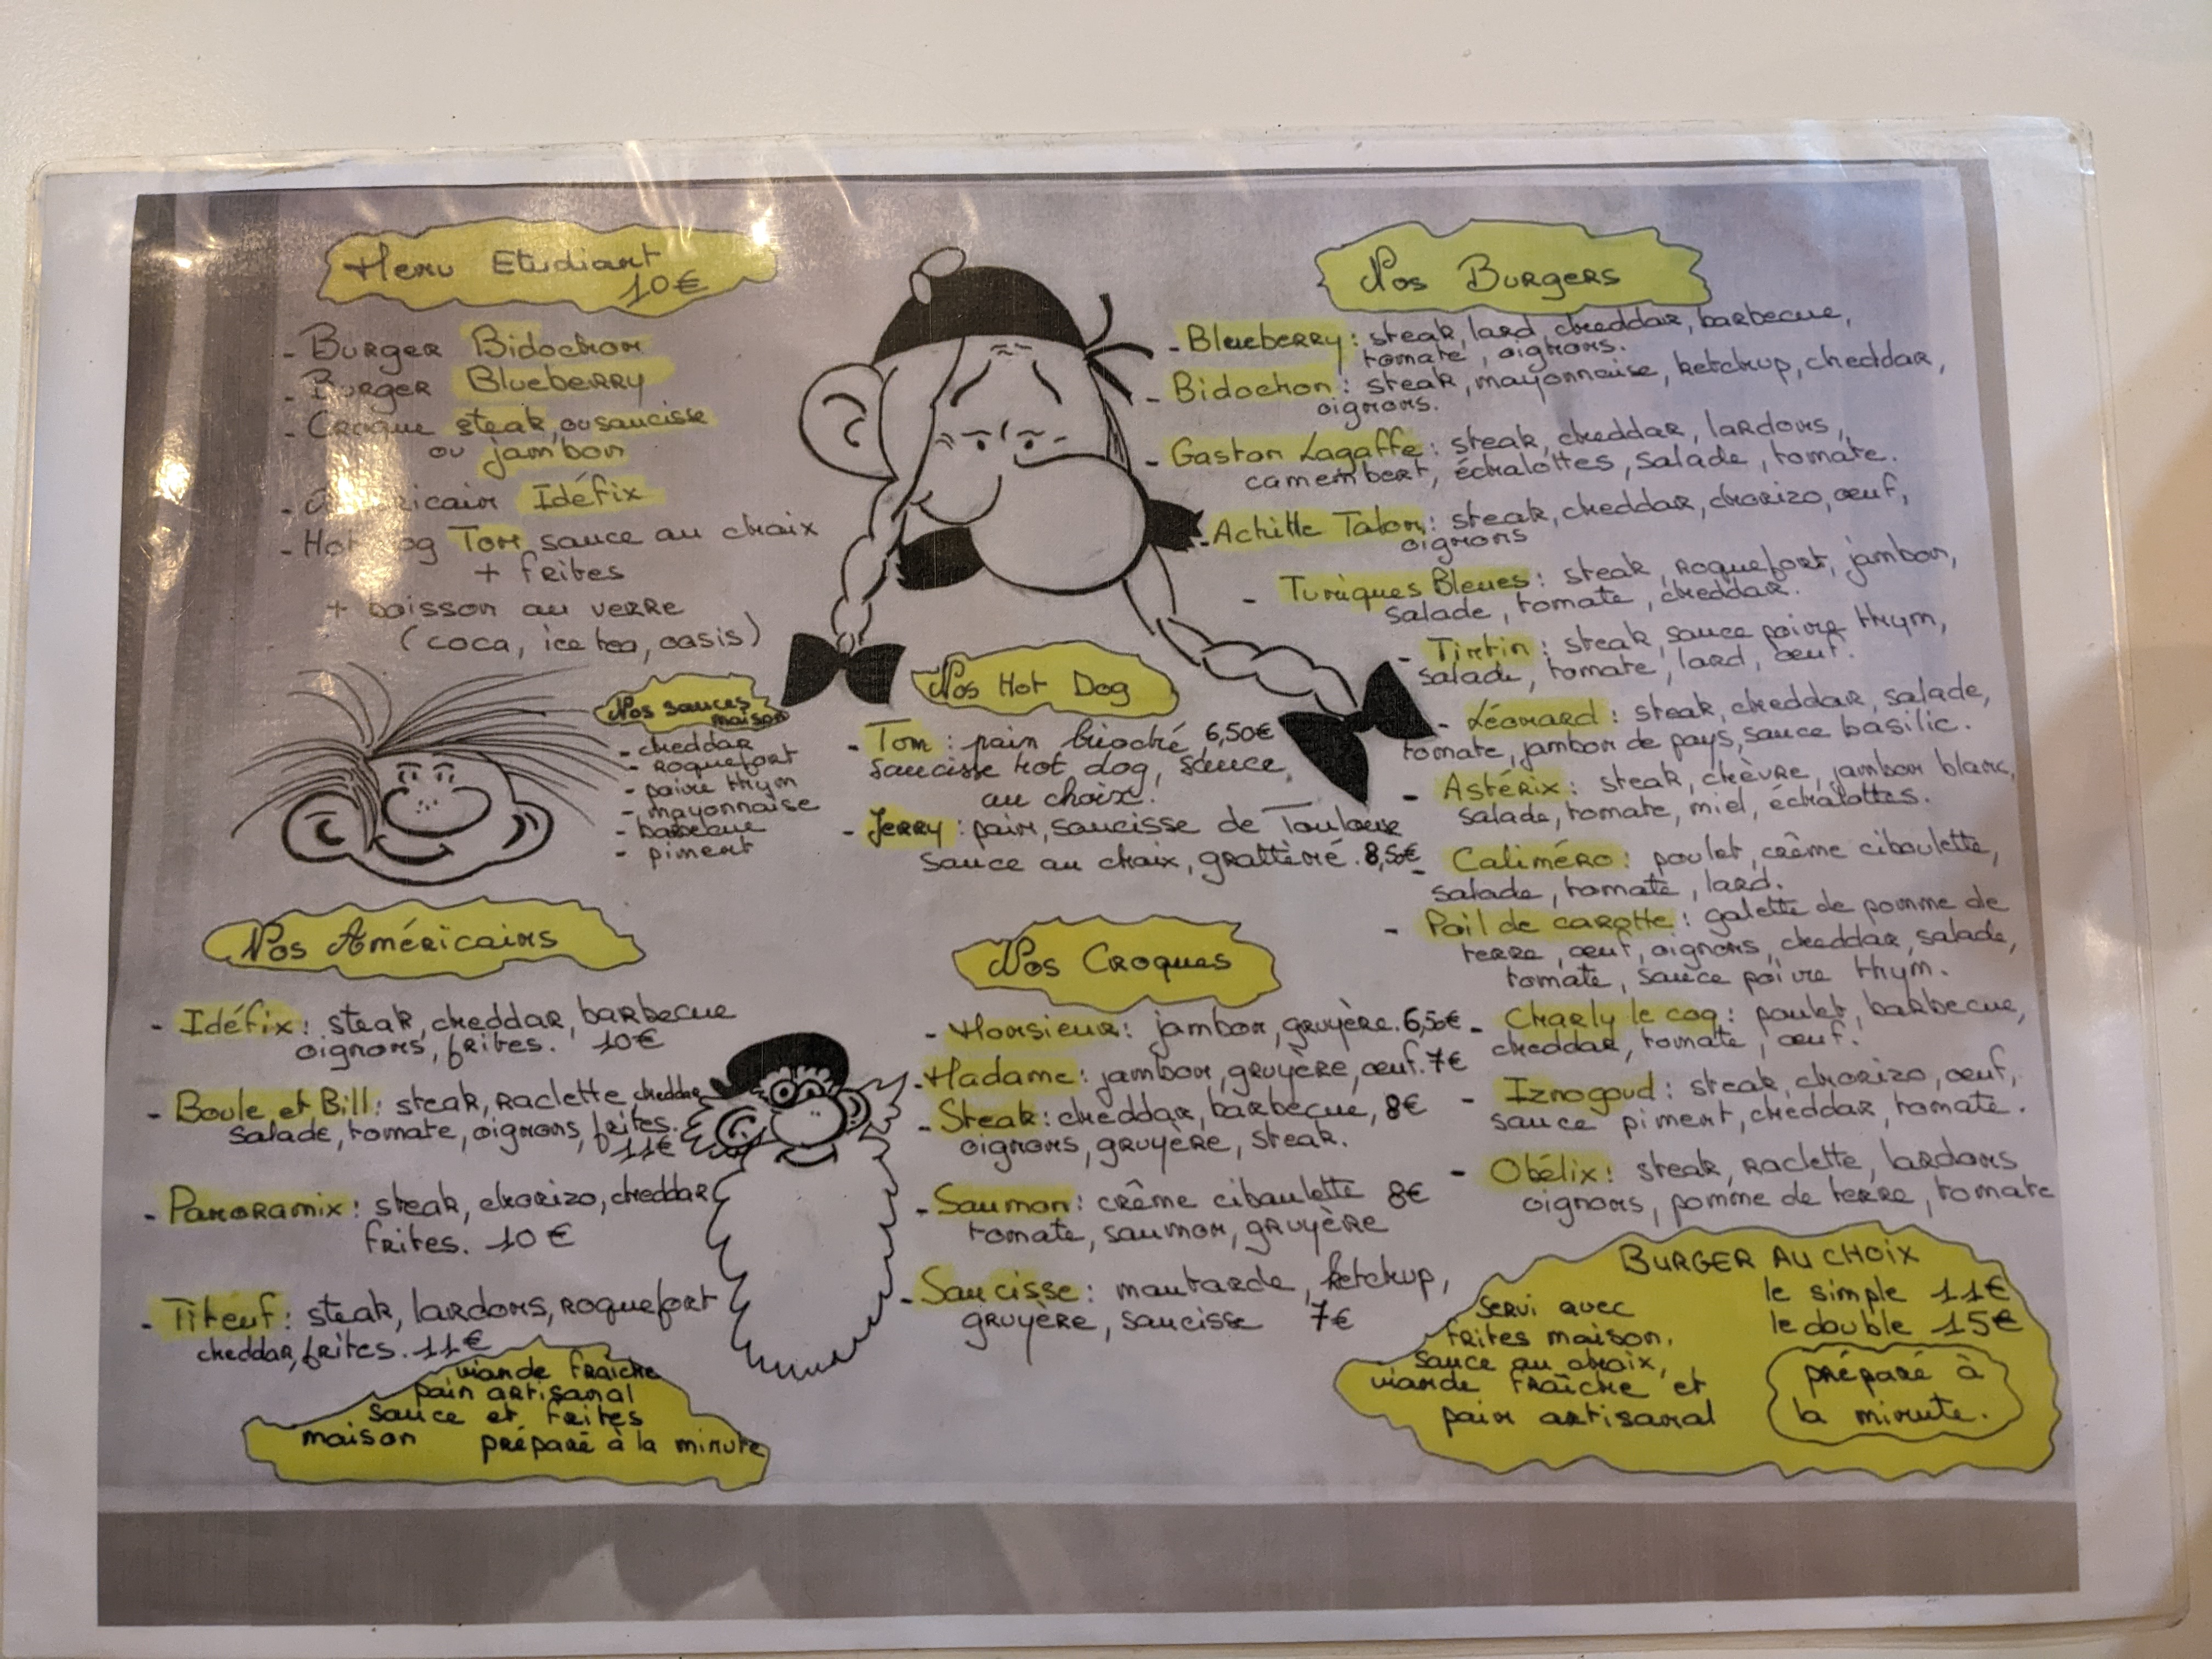 Menu Etudiant
10€
- Burger Bidochon
- Burger Blueberry
- Croque steak ou saucisse
ou jambon
- Américain Idéfix
- Hot Dog Tom sauce au choix
+ frites
+ boisson au verre
(coca, ice tea, oasis)
Nos sauces
maison
- cheddar
- roquefort
- poivre thym
- mayonnaise
- barbecue
- piment
Nos Américains
- Idéfix : steak, cheddar, barbecue
oignons, frites. 10€
- Boule et Bill : steak, raclette cheddar
salade, tomate, oignons, frites.
11€
- Panoramix : steak, chorizo, cheddar
frites. 10€
- Titeuf : steak, lardons, roquefort
cheddar, frites. 11€
viande fraîche
pain artisanal
sauce et frites
maison préparé à la minute
Nos Hot Dog
- Tom : pain brioché 6,50€
saucisse hot dog, sauce
au choix.
- Jerry : pain, saucisse de Toulouse
sauce au choix, grattiné. 8,50€
Nos Croques
- Monsieur : jambon, gruyère. 6,50€
- Madame : jambon, gruyère, œuf. 7€
- Steak : cheddar, barbecue, 8€
oignons, gruyère, steak.
- Saumon : crême ciboulette 8€
tomate, saumon, gruyère
- Saucisse : moutarde, ketchup,
gruyère, saucisse 7€
Nos Burgers
- Blueberry : steak, lard, cheddar, barbecue,
tomate, oignons.
- Bidochon : steak, mayonnaise, ketchup, cheddar,
oignons.
- Gaston Lagaffe : steak, cheddar, lardons,
camembert, échalottes, salade, tomate.
- Achille Talon : steak, cheddar, chorizo, œuf,
oignons
- Tuniques Bleues : steak, roquefort, jambon,
salade, tomate, cheddar.
- Tintin : steak, sauce poivre thym,
salade, tomate, lard, œuf.
- Léonard : steak, cheddar, salade,
tomate, jambon de pays, sauce basilic.
- Astérix : steak, chèvre, jambon blanc,
salade, tomate, miel, échalottes.
- Caliméro : poulet, crême ciboulette,
salade, tomate, lard.
- Poil de carotte : galette de pomme de
terre, œuf, oignons, cheddar, salade,
tomate, sauce poivre thym.
- Charly le coq : poulet, barbecue,
cheddar, tomate, œuf.
- Iznogoud : steak, chorizo, œuf,
sauce piment, cheddar, tomate.
- Obélix : steak, raclette, lardons
oignons, pomme de terre, tomate
BURGER AU CHOIX
le simple 11€
le double 15€
servi avec
frites maison,
sauce au choix,
viande fraîche et
pain artisanal
préparé à
la minute.